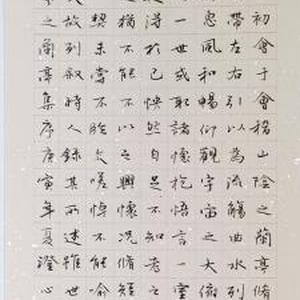 初會于會稽山陰之蘭亭脩
帶左右引以為流觴曲水列
惠風和暢仰觀宇宙之大俯
一世或取諸懷抱悟言一室
得於己怏然自足不知老之
猶不能不以之興懷況脩短
契未嘗不臨文嗟悼不能喻
故列敘時人錄其所述雖世
之蘭亭集序庚寅年夏澄心